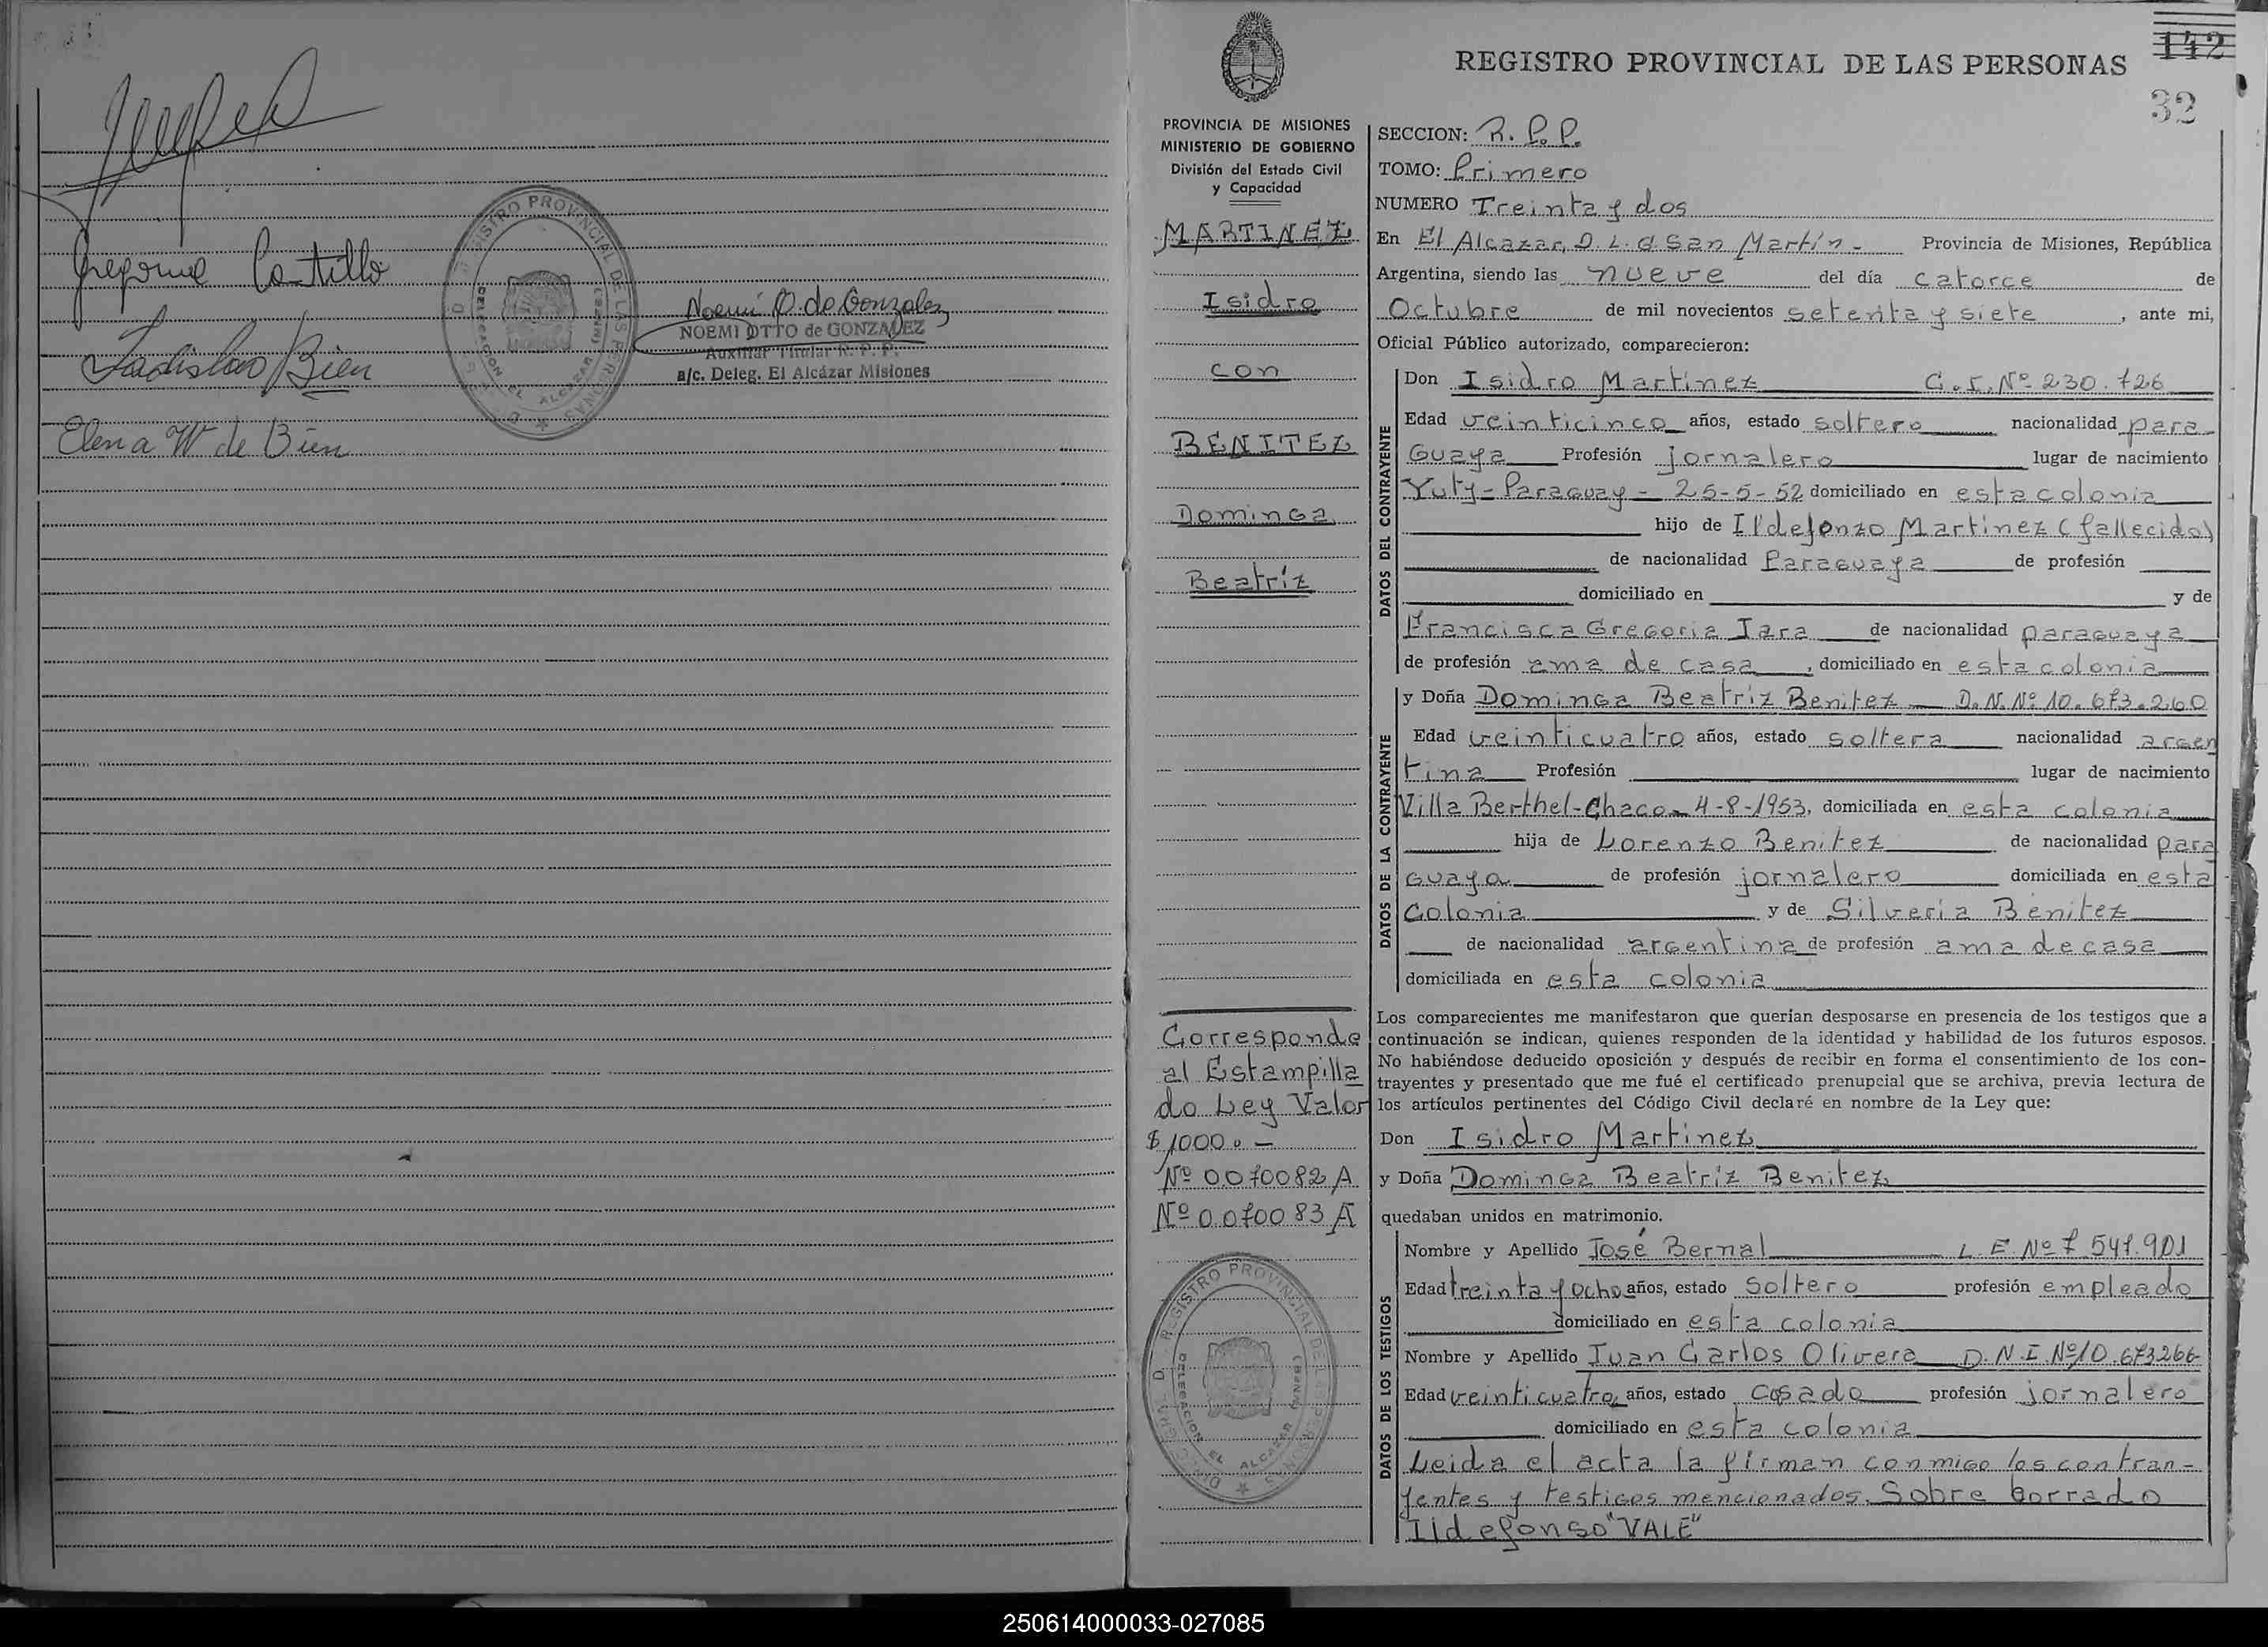 Gregorio Castillo
Ladislao Bien
Elena W de Bien
REGISTRO PROVINCIAL DE LAS PERSONAS
DELEGACION EL ALCAZAR
Noemí O. de Gonzalez
NOEMI OTTO de GONZALEZ
Auxiliar Titular R. P. P.
a/c. Deleg. El Alcázar Misiones
142
REGISTRO PROVINCIAL DE LAS PERSONAS
32
PROVINCIA DE MISIONES
MINISTERIO DE GOBIERNO
División del Estado Civil
y Capacidad
MARTINEZ
Isidro
con
BENITEZ
Dominga
Beatríz
Corresponde
al Estampilla
do Ley Valor
$ 1000.-
Nº 0070082 A
Nº 0070083 A
REGISTRO PROVINCIAL DE LAS PERSONAS
DELEGACION EL ALCAZAR
SECCION: R. P. P.
TOMO: Primero
NUMERO Treinta y dos
En El Alcazar, D. L. G. San Martín - Provincia de Misiones, República
Argentina, siendo las nueve del día catorce de
Octubre de mil novecientos setenta y siete, ante mi,
Oficial Público autorizado, comparecieron:
DATOS DEL CONTRAYENTE
Don Isidro Martínez C. I. Nº 230.726
Edad veinticinco años, estado soltero nacionalidad para
Guaya Profesión jornalero lugar de nacimiento
Yuty - Paraguay - 25-5-52 domiciliado en esta colonia
hijo de Ildefonzo Martínez (fallecido)
de nacionalidad Paraguaya de profesión
domiciliado en y de
Francisca Gregoria Jara de nacionalidad paraguaya
de profesión ama de casa, domiciliado en esta colonia
DATOS DE LA CONTRAYENTE
y Doña Dominga Beatríz Benitez D. N. Nº 10.673.260
Edad veinticuatro años, estado soltera nacionalidad argen
tina Profesión lugar de nacimiento
Villa Berthel-Chaco - 4-8-1953, domiciliada en esta colonia
hija de Lorenzo Benitez de nacionalidad para
guaya de profesión jornalero domiciliada en esta
Colonia y de Silveria Benitez
de nacionalidad argentina de profesión ama de casa
domiciliada en esta colonia
Los comparecientes me manifestaron que querían desposarse en presencia de los testigos que a
continuación se indican, quienes responden de la identidad y habilidad de los futuros esposos.
No habiéndose deducido oposición y después de recibir en forma el consentimiento de los con-
trayentes y presentado que me fué el certificado prenupcial que se archiva, previa lectura de
los artículos pertinentes del Código Civil declaré en nombre de la Ley que:
Don Isidro Martinez
y Doña Dominga Beatríz Benitez
quedaban unidos en matrimonio.
DATOS DE LOS TESTIGOS
Nombre y Apellido José Bernal L. E. Nº 7 541.901
Edad treinta y ocho años, estado soltero profesión empleado
domiciliado en esta colonia
Nombre y Apellido Juan Carlos Olivera D. N. I. Nº 10.673266
Edad veinticuatro años, estado casado profesión jornalero
domiciliado en esta colonia
Leida el acta la firman conmigo los contran-
yentes y testigos mencionados. Sobre borrado
"Ildefonso" VALE"
250614000033-027085